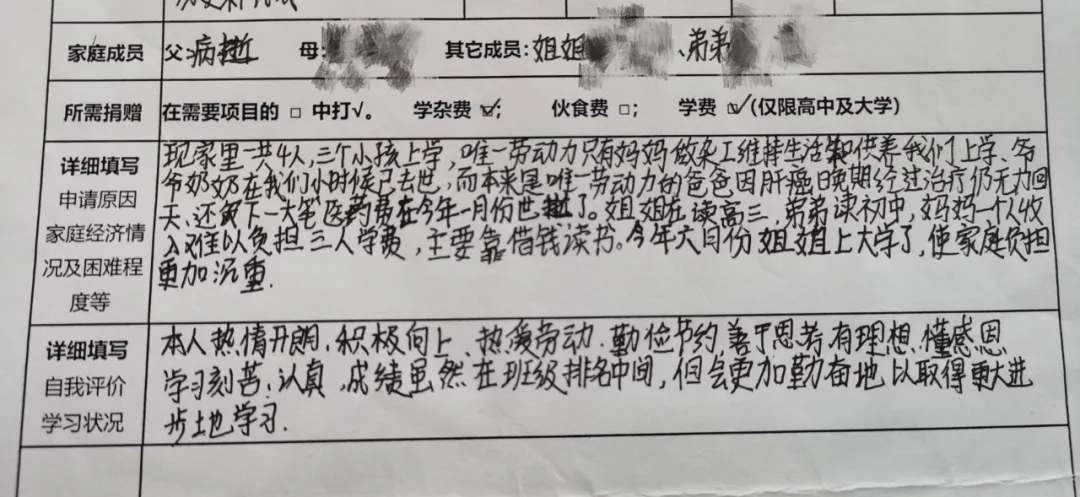 家庭成员 父:病逝 母: 其它成员:姐姐 、弟弟
所需捐赠 在需要项目的 □ 中打√。 学杂费 ☑; 伙食费 □; 学费 ☑(仅限高中及大学)
详细填写
申请原因
家庭经济情
况及困难程
度等
现家里一共4人,三个小孩上学,唯一劳动力只有妈妈做杂工维持生活和供养我们上学、爷
爷奶奶在我们小时候已去世,而本来是唯一劳动力的爸爸因肝癌晚期经过治疗仍无力回
天、还欠下一大笔医药费在今年一月份世逝了。姐姐在读高三,弟弟读初中,妈妈一个人收
入难以负担三人学费,主要靠借钱读书。今年六月份姐姐上大学了,使家庭负担
更加沉重.
详细填写
自我评价
学习状况
本人热情开朗、积极向上、热爱劳动、勤俭节约善于思考有理想、懂感恩
学习刻苦、认真,成绩虽然在班级排名中间,但会更加勤奋地以取得更大进
步地学习.